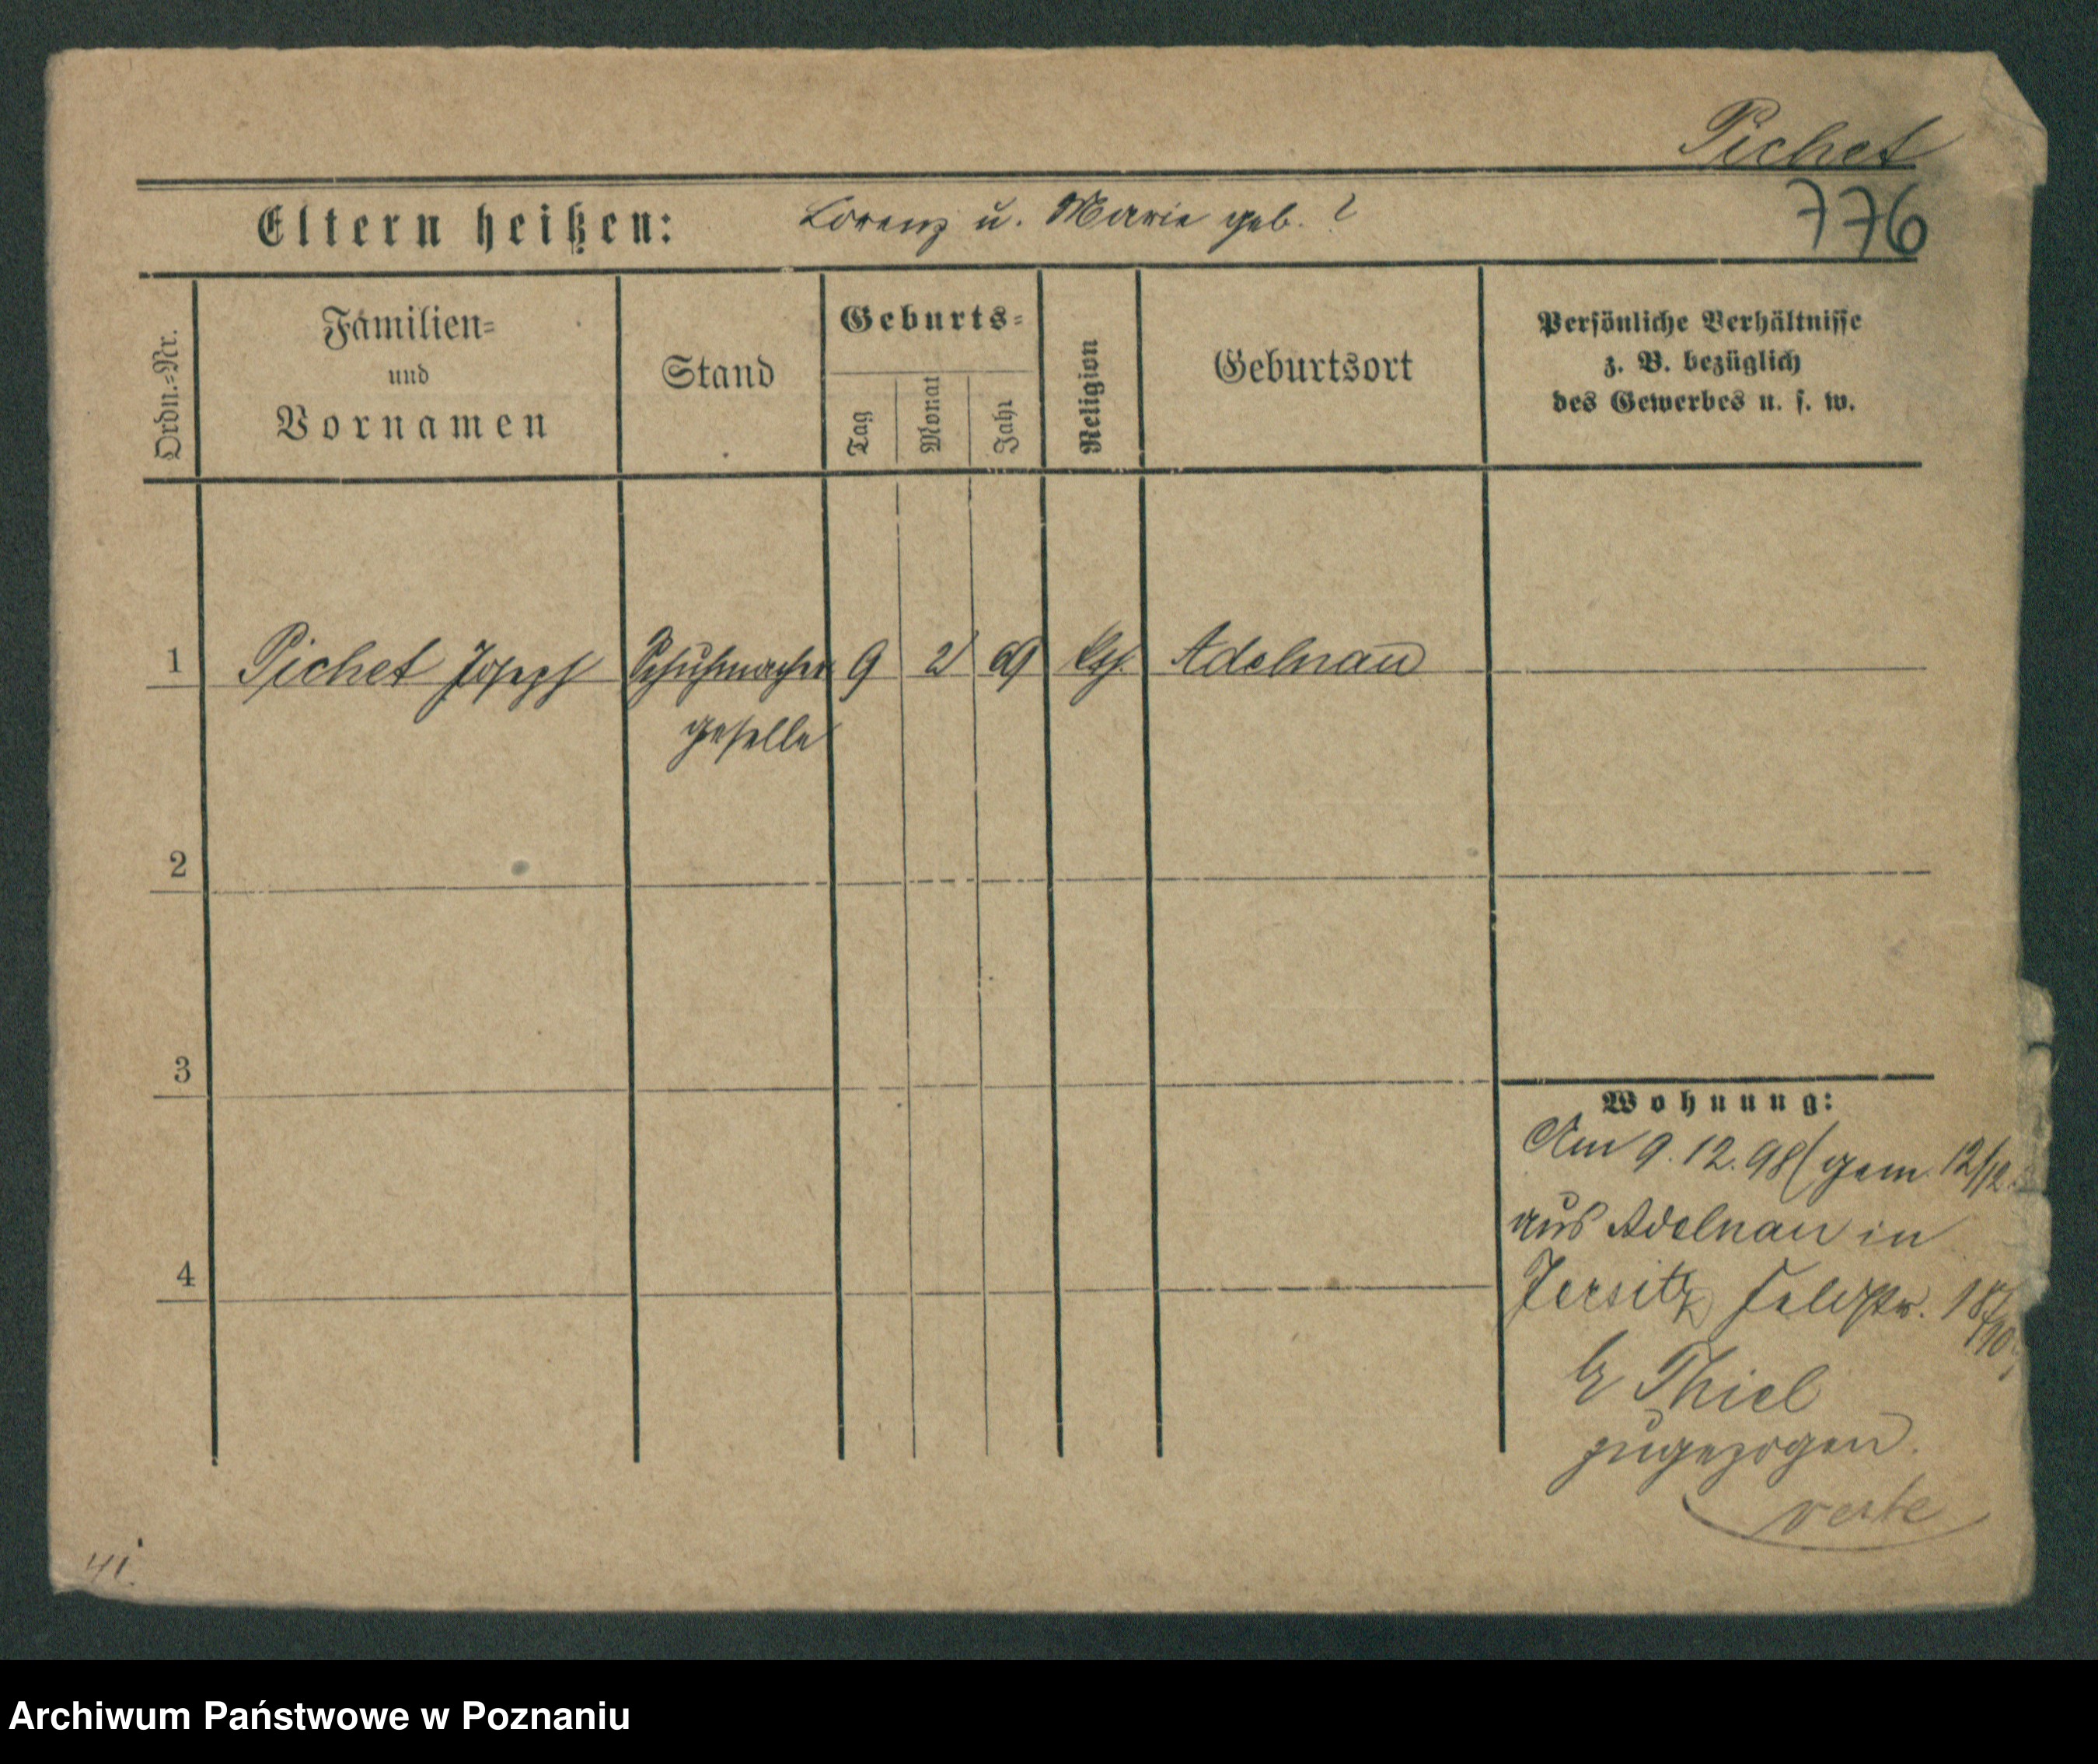 Pichet
776
Eltern heißen: Lorenz u. Marie geb. ?
Ordn.-Nr.
Familien-
und
Vornamen
Stand
Geburts-
Tag
Monat
Jahr
Religion
Geburtsort
Persönliche Verhältnisse
z. B. bezüglich
des Gewerbes u. s. w.
1 Pichet Joseph Schuhmacher 9 2 69 kth. Adelnau
geselle
2
3
4
Wohnung:
Am 9.12.98 (gem. 12/12.
aus Adelnau in
Jersitz Feldstr. 18
b/ Thiel
zugezogen.
verte
41.
Archiwum Państwowe w Poznaniu